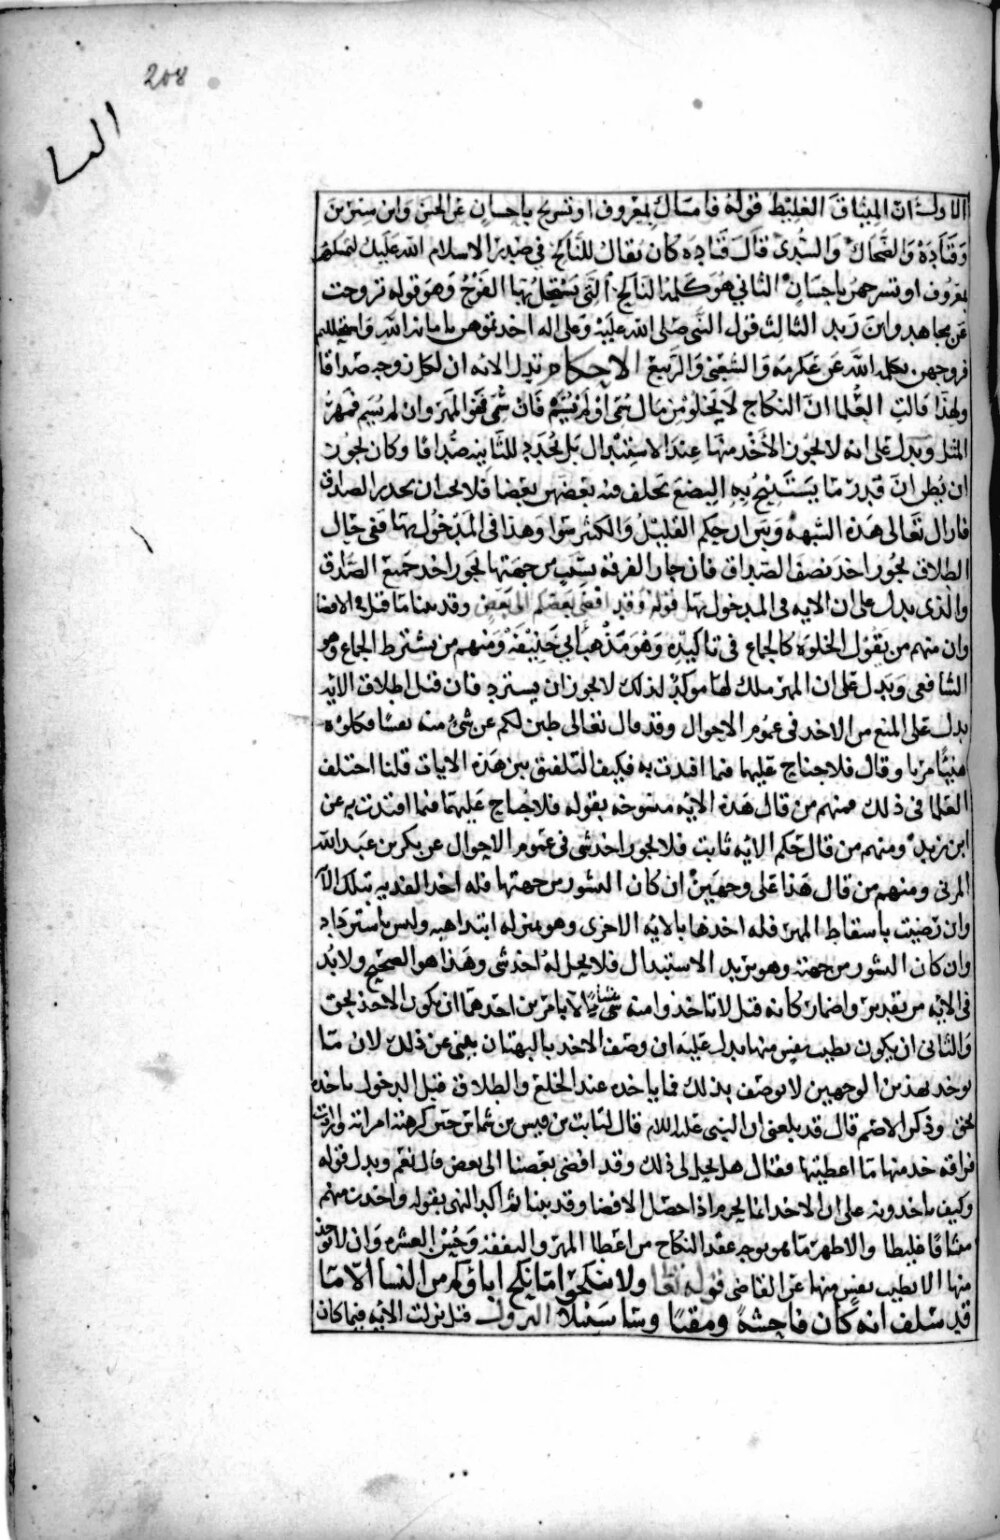 208
النسا
الاول ان الميثاق الغليظ قوله فامساك بمعروف او تسريح باحسان عن الحسن وابن سيرين
وقتادة والضحاك والسدي قال قتاده كان يقال للناكح في صدر الاسلام الله عليك لتمسكهن
بمعروف او تسرحهن باحسان الثاني هو كلمة النكاح التي يستحل بها الفرج وهو قوله تزوجت
عن مجاهد وابن زيد الثالث قول النبي صلى الله عليه وعلى اله اخذتموهن بامانة الله واستحللتم
فروجهن بكلمة الله عن عكرمه والشعبي والربيع الاحكام تدل الايه ان لكل زوجه صداقا
ولهذا قالت العلما ان النكاح لا يخلو من مال سمى او لم يسم فان سمى فهو المهر وان لم يسم فمهر
المثل ويدل على انه لا يجوز الاخذ منها عند الاستبدال بل يجدد للثانيه صداقا وكان يجوز
ان يظن ان قدر ما يستبيح به البضع تخلف فيه بعضهن بعضا فلا يجب ان يجدد الصداق
فازال تعالى هذه الشبهة وبين ان حكم القليل والكثير سوا وهذا في المدخول بها ففي حال
الطلاق يجوز اخذ نصف الصداق فان جاز الفرقه بسبب من جهتها يجوز اخذ جميع الصداق
والذي يدل على ان الايه في المدخول بها قوله وقد افضى بعضكم الى بعض وقد بينا ما قيل في الافضا
وان منهم من يقول الخلوه كالجماع في تاكيده وهو مذهب ابي حنيفة ومنهم من يشترط الجماع وهو
الشافعي ويدل على ان المهر ملك لها موكد لذلك لا يجوز ان يسترد فان قيل اطلاق الايه
يدل على المنع من الاخذ في عموم الاحوال وقد قال تعالى طبن لكم عن شئ منه نفسا فكلوه
هنيئا مريا وقال فلا جناح عليهما فيما افتدت به فكيف التلفيق بين هذه الايات قلنا اختلف
العلما في ذلك فمنهم من قال هذه الايه منسوخه بقوله فلا جناح عليهما فيما افتدت به عن
ابن زيد ومنهم من قال حكم الايه ثابت فلا يجوز اخذ شي في عموم الاحوال عن بكر بن عبد الله
المزني ومنهم من قال هذا على وجهين ان كان النشوز من جهتها فله اخذ الفديه بتلك الا
وان رضيت باسقاط المهر فله اخذها بالايه الاخرى وهو منزله ابتدا هبه وليس باسترداد
وان كان النشوز من جهته وهو يريد الاستبدال فلا يحل له اخذ شي وهذا هو الصحيح ولا بد
في الايه من تقدير واضمار كانه قيل لا تاخذوا منه شيا الا بامرين احدهما ان يكون الاخذ بحق
والثاني ان يكون بطيب نفس منها يدل عليه ان وصف الاخذ بالبهتان يغني عن ذلك لان ما
يوخذ بهذين الوجهين لا يوصف بذلك فما ياخذه عند الخلع والطلاق قبل الدخول ياخذه
بحق وذكر الاصم قال قد بلغني ان النبي عليه السلام قال لثابت بن قيس بن شماس حين كرهته امراته وارادت
فراقه خذ منها ما اعطيتها فقال هل يحل لي ذلك وقد افضى بعضنا الى بعض قال نعم ويدل قوله
وكيف تاخذونه على ان الاخذ انما يحرم اذا حصل الافضا وقد بينا ثم اكد النهي بقوله واخذن منكم
ميثاقا غليظا والاظهر ما هو يوجبه عقد النكاح من اعطا المهر والنفقه وحسن العشره وان لا توخذ
منها الا بطيب نفس منها عن القاضي قوله تعالى ولا تنكحوا ما نكح اباؤكم من النسا الا ما
قد سلف انه كان فاحشة ومقتا وسا سبيلا النزول قيل نزلت الايه فيما كان